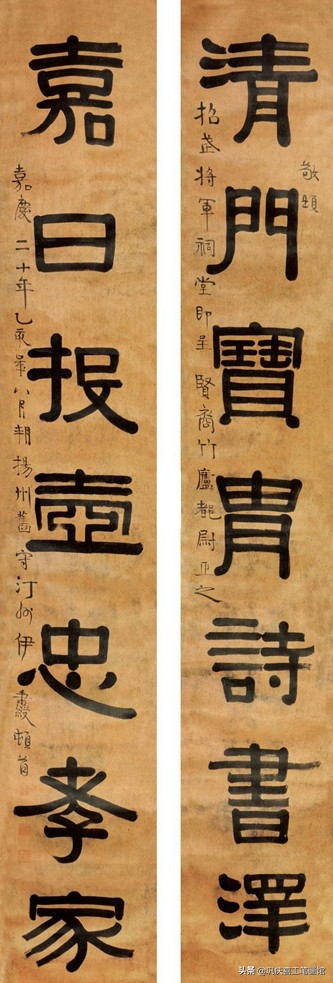 清門寶胄詩書澤
敬頌
招武將軍祠堂即呈賢裔竹廬都尉正之
嘉日投壺忠孝家
嘉慶二十年乙亥八月朔揚州舊守汀州伊秉綬頓首
头条@巩伏喜工笔画馆